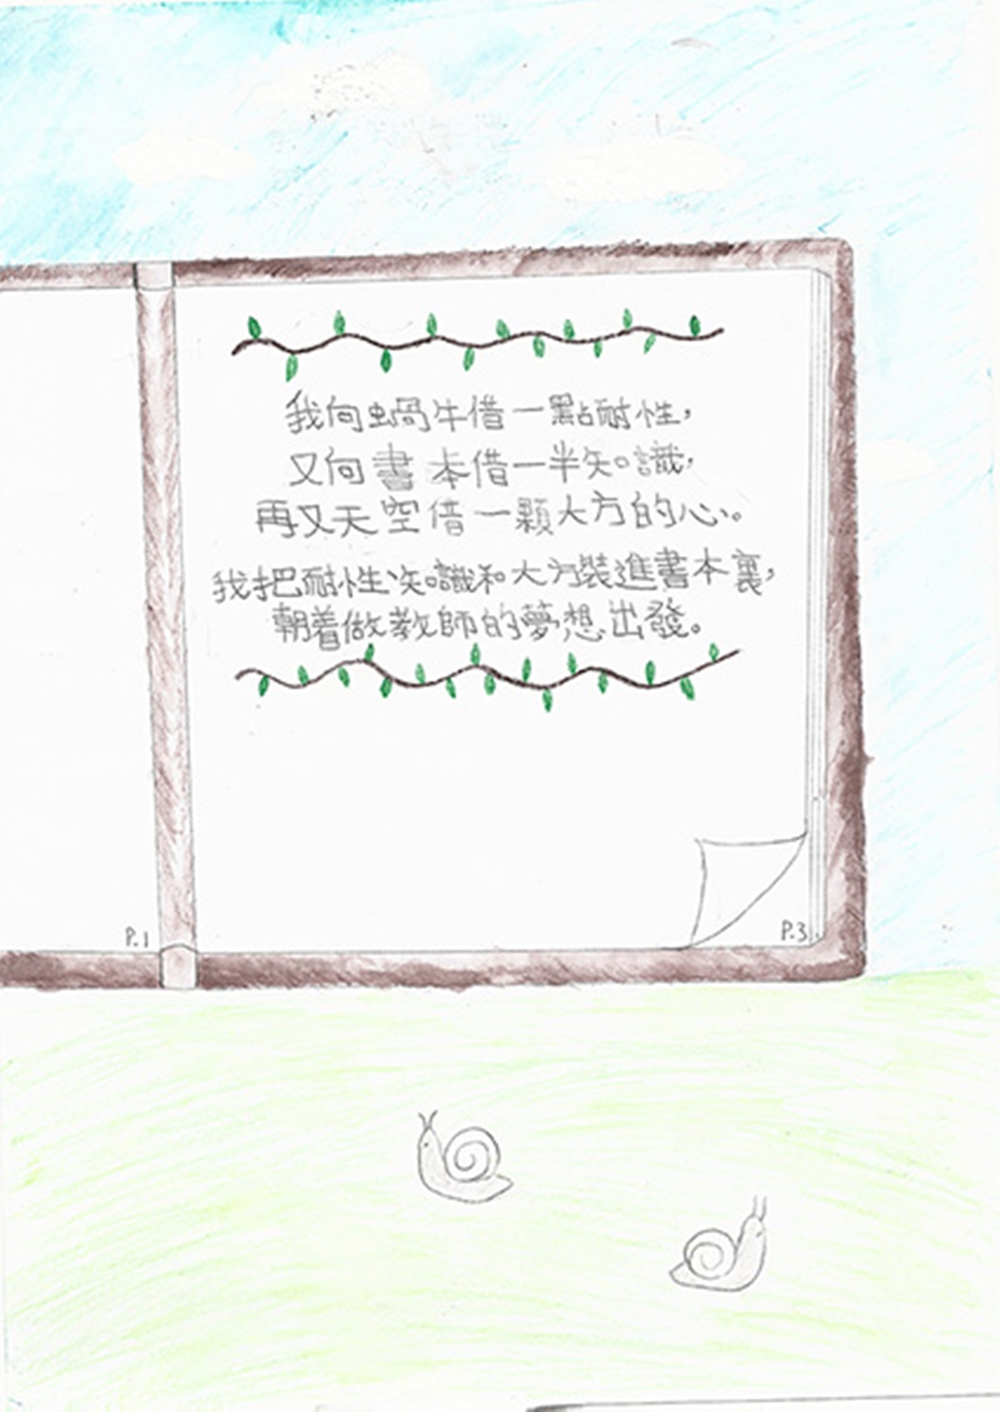 我向蝸牛借一點耐性，
又向書本借一半知識，
再又天空借一顆大方的心。
我把耐性、知識和大方裝進書本裏，
朝着做教師的夢想出發。
P.1
P.3